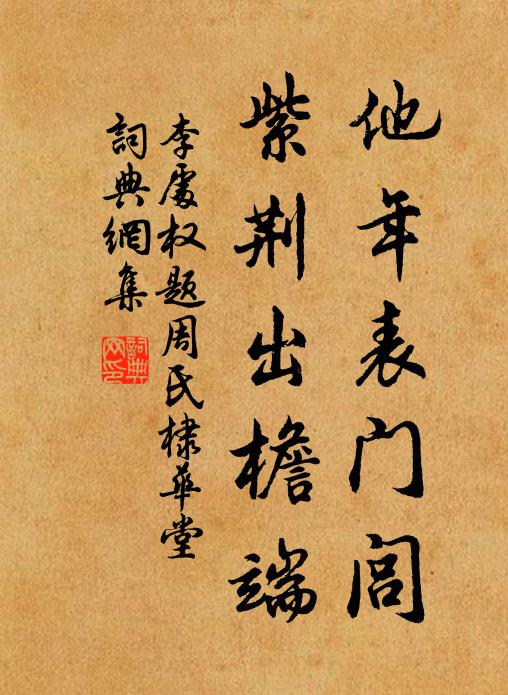 他年表门闾
紫荆出檐端
李处权题周氏棣华堂
詞典網集
詞典网印